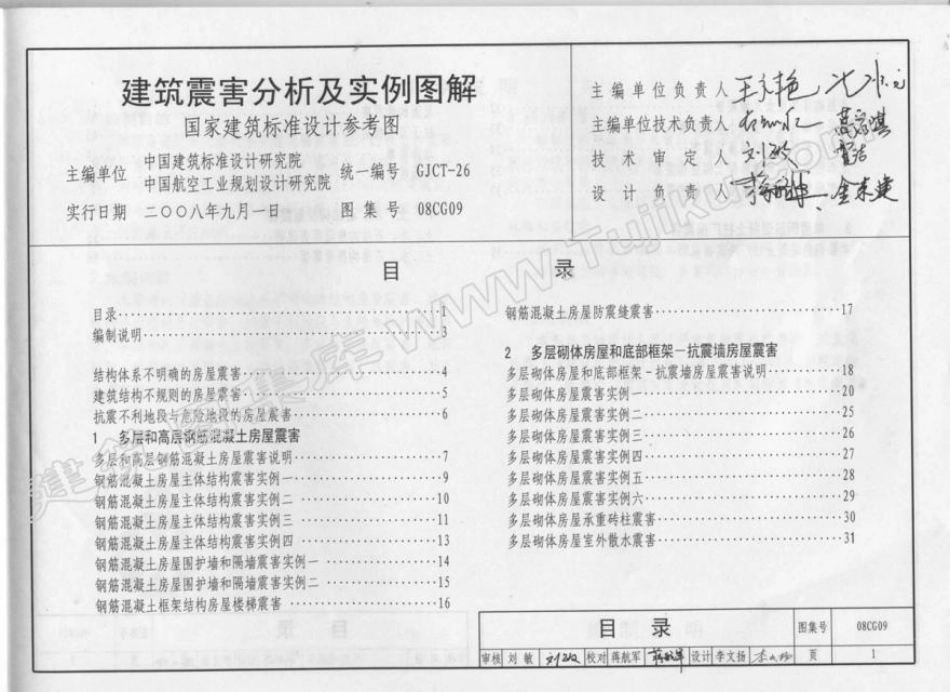 建筑震害分析及实例图解
国家建筑标准设计参考图
主编单位 中国建筑标准设计研究院
中国航空工业规划设计研究院
统一编号 GJCT-26
实行日期 二〇〇八年九月一日 图集号 08CG09
主编单位负责人
主编单位技术负责人
技术审定人 刘敏
设计负责人
目 录
目录……1
编制说明……3
结构体系不明确的房屋震害……4
建筑结构不规则的房屋震害……5
抗震不利地段与危险地段的房屋震害……6
1 多层和高层钢筋混凝土房屋震害
多层和高层钢筋混凝土房屋震害说明……7
钢筋混凝土房屋主体结构震害实例一……9
钢筋混凝土房屋主体结构震害实例二……10
钢筋混凝土房屋主体结构震害实例三……11
钢筋混凝土房屋主体结构震害实例四……13
钢筋混凝土房屋围护墙和隔墙震害实例一……14
钢筋混凝土房屋围护墙和隔墙震害实例二……15
钢筋混凝土框架结构房屋楼梯震害……16
钢筋混凝土房屋防震缝震害……17
2 多层砌体房屋和底部框架-抗震墙房屋震害
多层砌体房屋和底部框架-抗震墙房屋震害说明……18
多层砌体房屋震害实例一……20
多层砌体房屋震害实例二……25
多层砌体房屋震害实例三……26
多层砌体房屋震害实例四……27
多层砌体房屋震害实例五……28
多层砌体房屋震害实例六……29
多层砌体房屋承重砖柱震害……30
多层砌体房屋室外散水震害……31
目 录 图集号 08CG09
审核 刘敏 刘敏 校对 蒋航军 蒋航军 设计 李文扬 页 1
建筑图集库 www.Tujiku.com